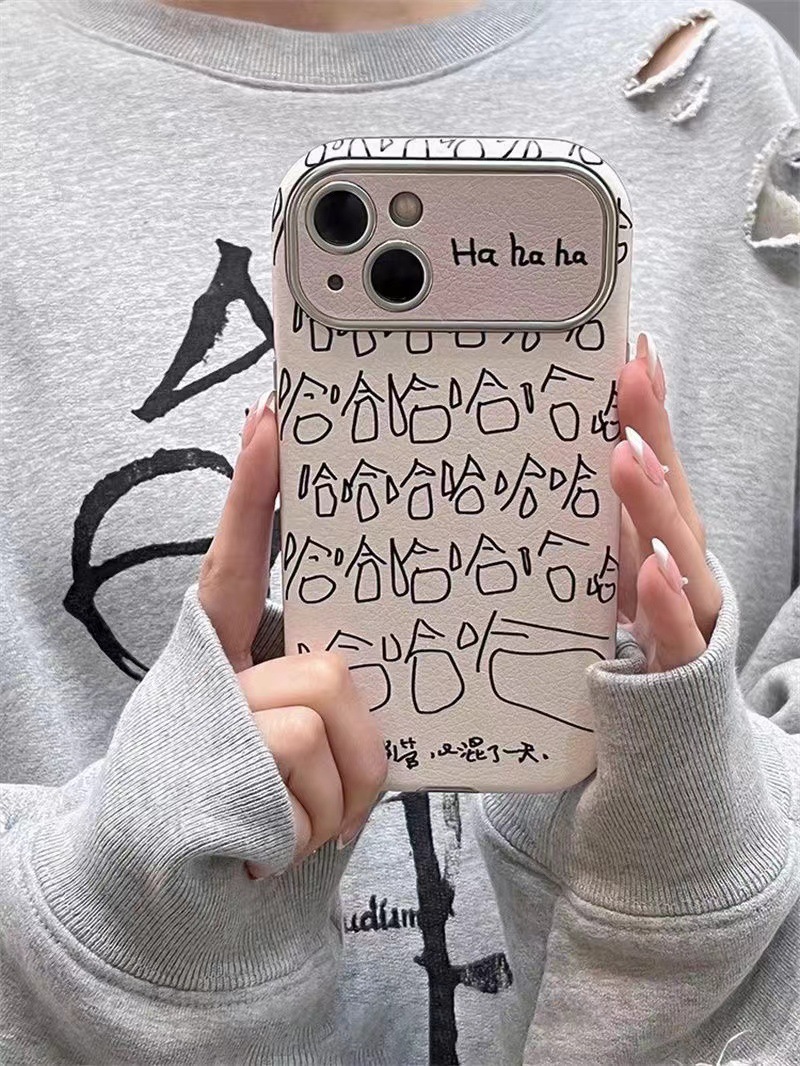 Ha ha ha
哈哈哈哈哈哈
哈哈哈哈哈哈
哈哈哈哈哈哈
哈哈哈
管,又混了一天.
udism